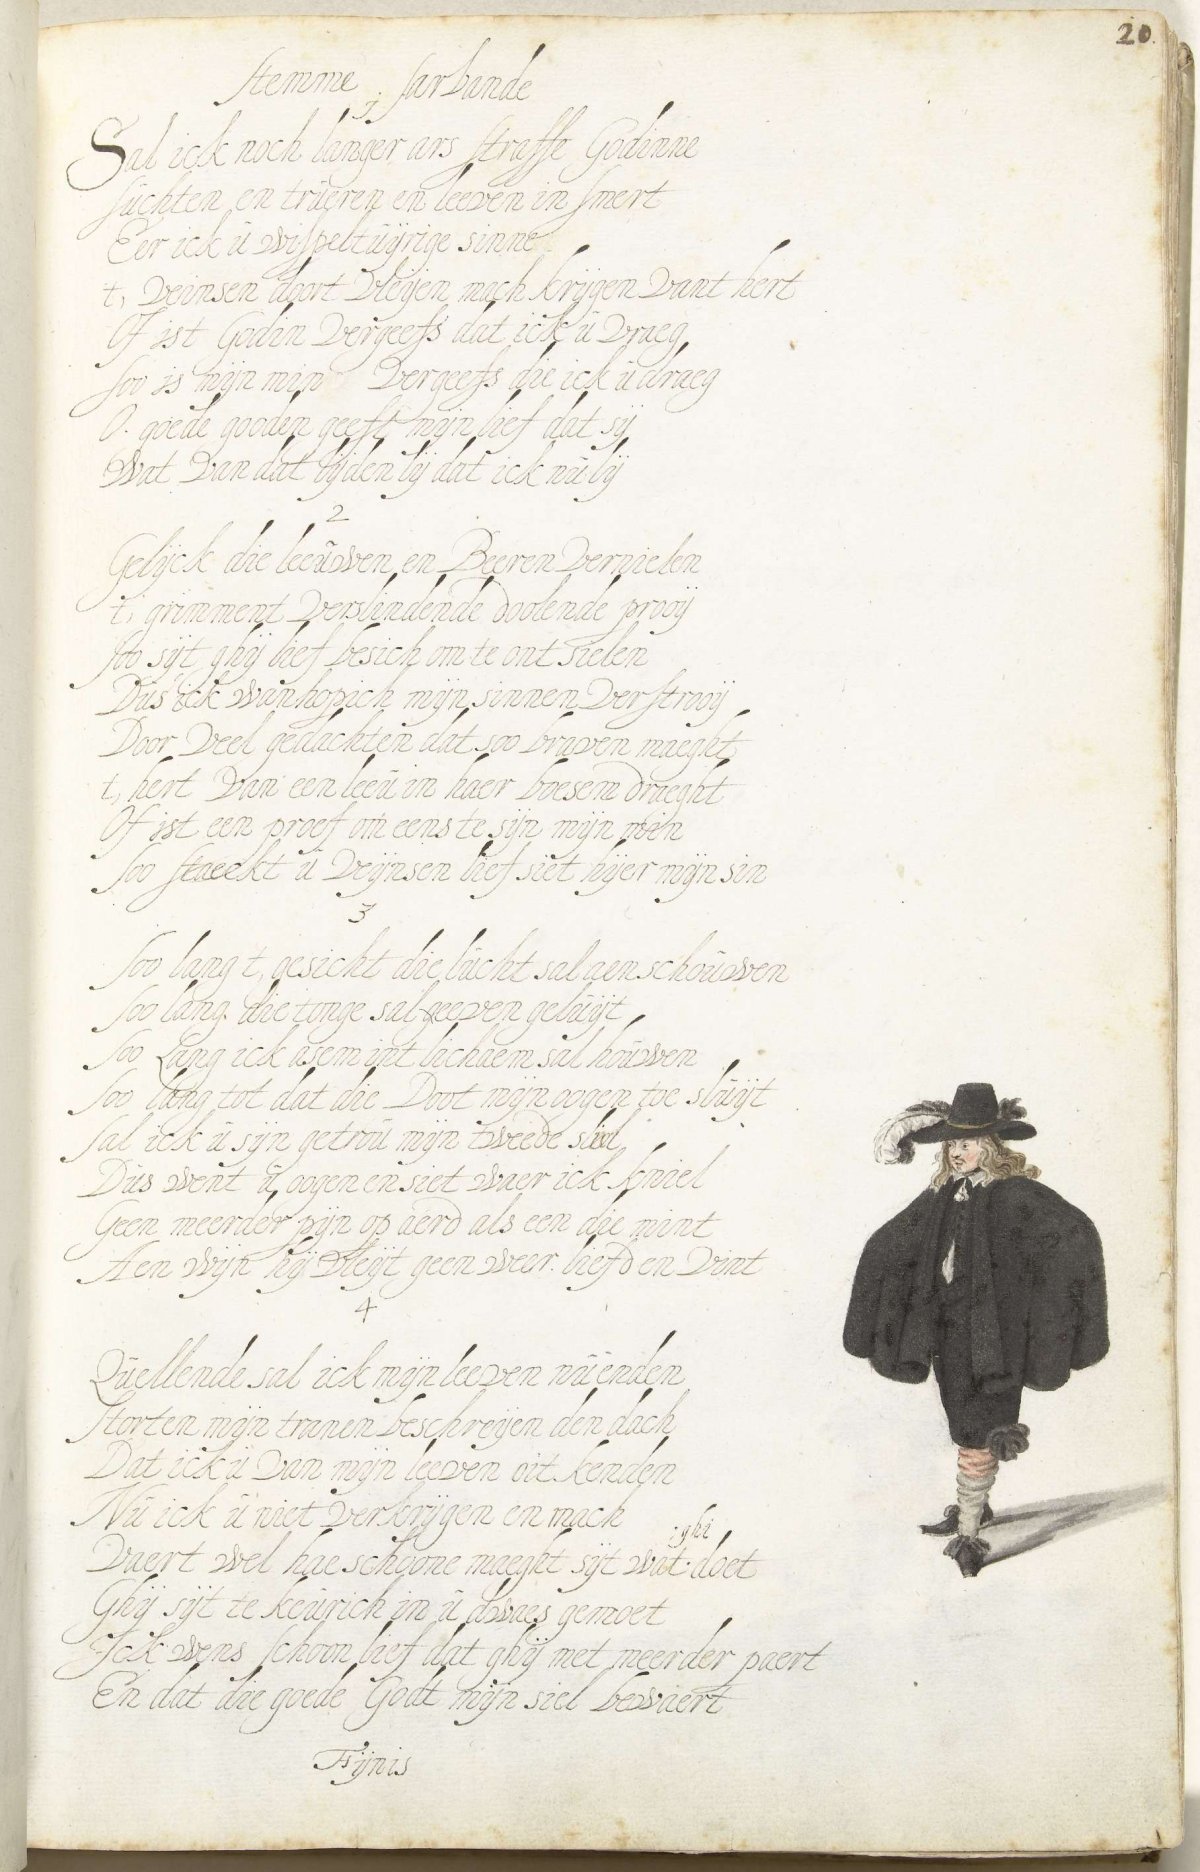 20.
Stemme sarbande
1
Sal ick noch langer ars straffe Godinne
suchten en trueren en leeven in smert
Eer ick ŭ wispeltŭijrige sinne
t, veinsen doort vleijen mach krijgen vant hert
Of ist Godin vergeefs dat ick ŭ vraeg
soo is mijn min vergeefs die ick ŭ draeg
O. goede gooden geeft mijn lief dat sij
Wat van dat lijden lij dat ick nŭ lij
2
Gelijck die leeŭwen en Beeren vernielen
t, grimment verslindende doolende prooij
soo sijt ghij lief besich om te ont sielen
Dŭs ick wanhopich mijn sinnen verstrooij
Door veel gedachten dat soo braven maeght
t, hert van een leeŭ in haer boesem draeght
Of ist een proef om eens te sijn mijn min
soo staeckt ŭ veijnsen lief siet hijer mijn sin
3
soo lang t, gesicht die lŭcht sal aenschoŭwen
soo lang die tonge sal geeven gelŭijt
soo Lang ick asem int lichaem sal hoŭwen
soo lang tot dat die Doot mijn oogen toe slŭijt
sal ick ŭ sijn getroŭ mijn tweede siel
Dŭs went ŭ oogen en siet waer ick kniel
Geen meerder pijn op aerd als een die mint
Aen wijn hij vleijt geen weer. liefd en vint
4
Qŭellende sal ick mijn leeven nŭ enden
storten mijn tranen beschreijen den dach
Dat ick ŭ van mijn leeven oit kenden
Nŭ ick ŭ niet verkrijgen en mach
Vaert wel hae schoone maeght sijt wat ghi doet
Ghij sijt te keŭrich in ŭ dwaes gemoet
Ick wens schoon lief dat ghij met meerder paert
En dat die goede Godt mijn siel bewaert
Fijnis